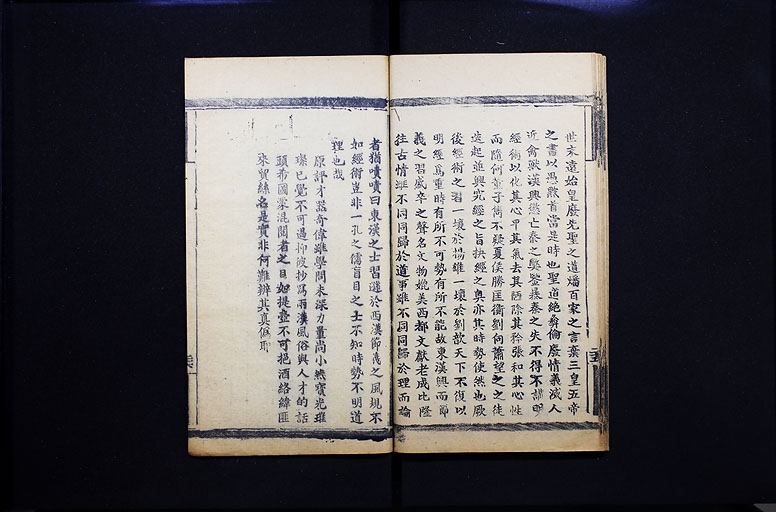 世末遠始皇廢先聖之道燔百家之言棄三皇五帝
之書以愚黔首當是時也聖道絶彛倫廢情義滅人
近禽獸漢興懲亡秦之弊鑒暴秦之失不得不講明
經術以化其心甲其氣去其陋除其矜張和其心性
而隨何董子雋不疑夏侯勝匡衡劉向蕭望之之徒
迭起並興究經之旨抉經之奧亦其時勢使然也厥
後經術之習一壞於楊雄一壞於劉歆天下不復以
明經爲重時有所不可勢有所不能故東漢興而節
義之習盛卒之聲名文物媲美西都文獻老成比隆
往古情雖不同同歸於道事雖不同同歸於理而論
者猶嘖嘖曰東漢之士習謎於西漢節義之風規不
如經術豈非一孔之儒盲目之士不知時勢不明道
理也哉
原評才器奇偉雖學問未深力量尚小然寶光璀
璨已覺不可遏抑彼抄寫兩漢風俗與人才的話
頭希圖蒙混閱者之目如提壺不可挹酒絡緯匪
來貿絲名是實非何難辨其真僞耶